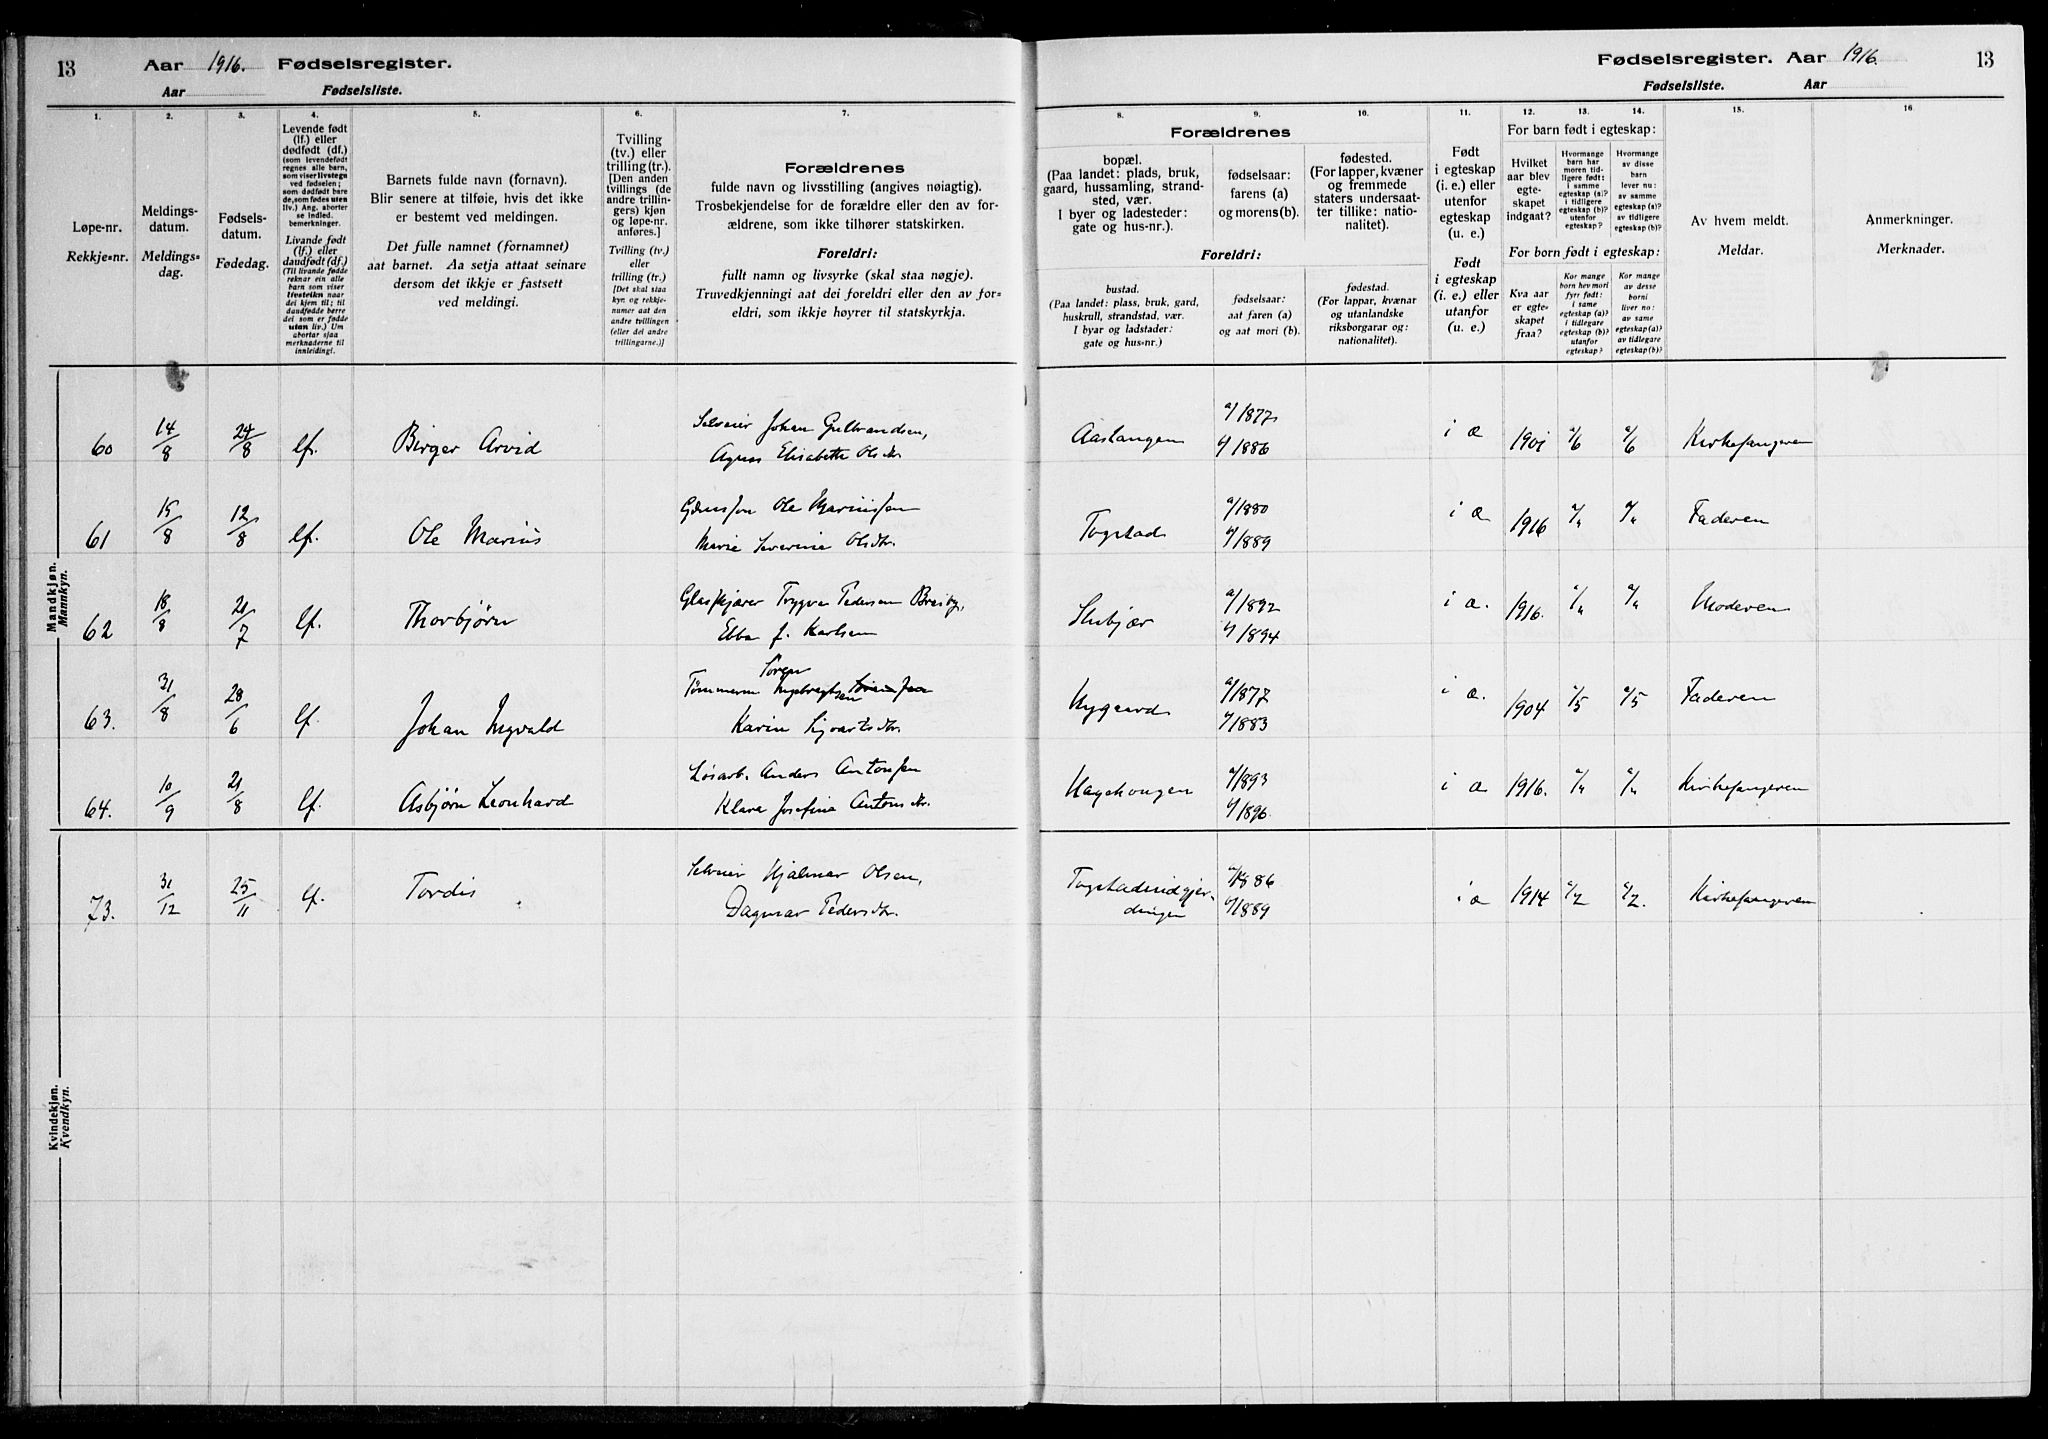 13 Aar 1916. Fødselsregister.
Aar Fødselsliste.
Fødselsregister. Aar 1916. 13
Fødselsliste. Aar
1. 2. 3. 4. 5. 6. 7.
Løpe-nr.
Rekkje=nr.
Meldings-
datum.
Meldings=
dag.
Fødsels-
datum.
Fødedag.
Levende født
(lf.) eller
dødfødt (df.)
(som levendefødt
regnes alle barn,
som viser livstegn
ved fødselen;
som dødfødt bare
de, som fødes uten
liv.) Ang. aborter
se indled.
bemerkninger.
Livande født
(lf.) eller
daudfødt (df.)
(Til livande fødde
reknar ein alle
barn som viser
livsteikn naar
dei kjem til; til
daudfødde berre
dei som er fødde
utan liv.) Um
abortar sjaa
merknaderne til
innleidingi.
Barnets fulde navn (fornavn).
Blir senere at tilføie, hvis det ikke
er bestemt ved meldingen.
Det fulle namnet (fornamnet)
aat barnet. Aa setja attaat seinare
dersom det ikkje er fastsett
ved meldingi.
Tvilling
(tv.) eller
trilling (tr.).
[Den anden
tvillings (de
andre trillin-
gers) kjøn
og løpe-nr.
anføres.]
Tvilling (tv.)
eller
trilling (tr.)
[Det skal staa
kyn og rekkje-
numer aat den
andre tvillingen
(eller dei andre
trillingarne.)]
Forældrenes
fulde navn og livsstilling (angives nøiagtig).
Trosbekjendelse for de forældre eller den av for-
ældrene, som ikke tilhører statskirken.
Foreldri:
fullt namn og livsyrke (skal staa nøgje).
Truvedkjenningi aat dei foreldri eller den av for=
eldri, som ikkje høyrer til statskyrkja.
8. 9. 10. 11. 12. 13. 14. 15. 16.
Forældrenes
bopæl.
(Paa landet: plads, bruk,
gaard, hussamling, strand-
sted, vær.
I byer og ladesteder:
gate og hus-nr.).
fødselsaar:
farens (a)
og morens (b).
fødested.
(For lapper, kvæner
og fremmede
staters undersaat-
ter tillike: natio-
nalitet).
Foreldri:
bustad.
(Paa landet: plass, bruk, gard,
huskrull, strandstad, vær.
I byar og ladstader:
gate og hus=nr.)
fødselsaar:
aat faren (a)
og aat mori (b).
fødestad.
(For lappar, kvænar
og utanlandske
riksborgarar og:
nationalitet).
Født
i egteskap
(i. e.) eller
utenfor
egteskap
(u. e.)
Født
i egteskap
(i. e.) eller
utanfor
(u. e.)
For barn født i egteskap:
Hvilket
aar blev
egte-
skapet
indgaat?
Hvormange
barn har
moren tid-
ligere født:
i samme
egteskap (a)?
i tidligere
egteskap (b)?
utenfor
egteskap?
Hvormange
av disse
barn
lever nu:
av samme
egteskap (a)?
av tidligere
egteskap (b)?
For born født i egteskap:
Kva aar
er egte-
skapet
fraa?
Kor mange
born hev mori
fyrr født:
i same
egteskap (a)?
i tidlegare
egteskap (b)?
utanfor
egteskap?
Kor mange
av desse
borni
liver no:
av same
egteskap (a)?
av tidlegare
egteskap (b)?
Av hvem meldt.
Meldar.
Anmerkninger.
Merknader.
Mandkjøn.
Mannkyn.
60 14/8 24/8 lf. Birger Arvid Selveier Johan Gulbrandsen, Aaslangen a/1877 i æ 1901 a/6 a/6 Kirkesangeren
Agnes Elisabeth Olsdtr. b/1886
61 15/8 12/8 lf. Ole Marius Ole Mariussen Togstad a/1880 i æ 1916 Faderen
Marie Severine Olsdtr. b/1889
62 18/8 21/7 lf. Thorbjørn Glasskjærer Trygve Pedersen Breiby, a/1892 i æ. 1916. Moderen
Ebba f. Karlsen b/1894
63. 31/8 28/6 lf. Johan Ingvald Tømmerm Ingebregtsen Sören Nygaard a/1877 i æ. 1904 a/5 a/5 Faderen
Karin Sivartsdtr. b/1883
64. 10/9 21/8 lf. Asbjørn Leonhard Løsarb. Anders Antonsen Hagehougen a/1893 i æ 1916. Kirkesangeren
Klara Josefine Antonsdtr. b/1896.
Kvindekjøn.
Kvendkyn.
73. 31/12 25/11 lf. Tordis Selveier Hjalmar Olsen, a/1886 i æ 1914 a/2 a/2. Kirkesangeren
Dagmar Pedersdtr. b/1889